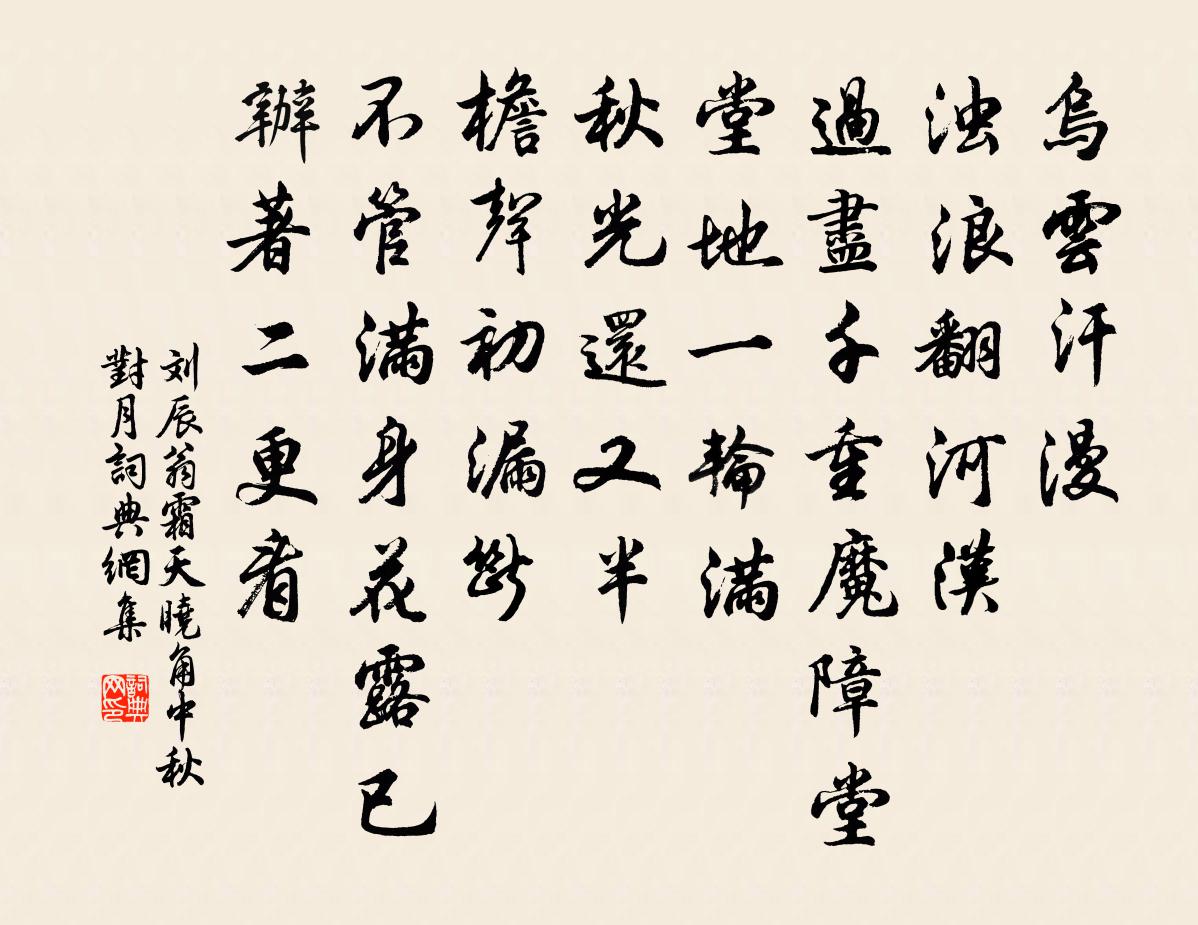 烏雲汗漫
浊浪翻河漢
過盡千重魔障堂
堂地一輪滿
秋光還又半
檐聲初漏斷
不管滿身花露已
辦著二更看
刘辰翁霜天曉角中秋
對月詞典網集
詞典网印